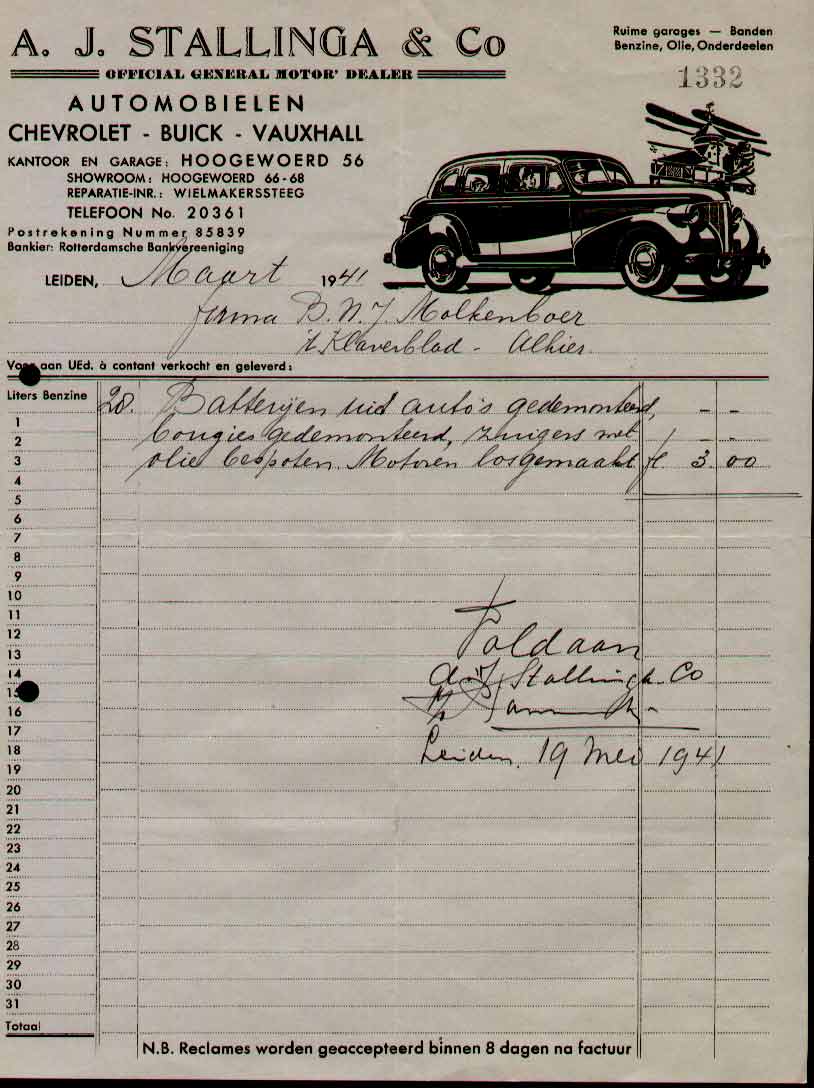 A. J. STALLINGA & Co
OFFICIAL GENERAL MOTOR' DEALER
Ruime garages — Banden
Benzine, Olie, Onderdeelen
1332
AUTOMOBIELEN
CHEVROLET - BUICK - VAUXHALL
KANTOOR EN GARAGE: HOOGEWOERD 56
SHOWROOM: HOOGEWOERD 66-68
REPARATIE-INR.: WIELMAKERSSTEEG
TELEFOON No. 20361
Postrekening Nummer 85839
Bankier: Rotterdamsche Bankvereeniging
LEIDEN, Maart 1941
firma B. N. J. Molkenboer
't Klaverblad - Alhier.
Voor aan UEd. à contant verkocht en geleverd:
Liters Benzine
28. Batterijen uid auto's gedemonteerd, - -
1
bougies gedemonteerd, zuigers met - -
2
olie bespoten. Motoren losgemaakt f. 3.00
3
4
5
6
7
8
9
10
11
12
Voldaan
13
A. J. Stallinga Co
14
15
16
17
18
Leiden, 19 Mei 1941
19
20
21
22
23
24
25
26
27
28
29
30
31
Totaal
N.B. Reclames worden geaccepteerd binnen 8 dagen na factuur